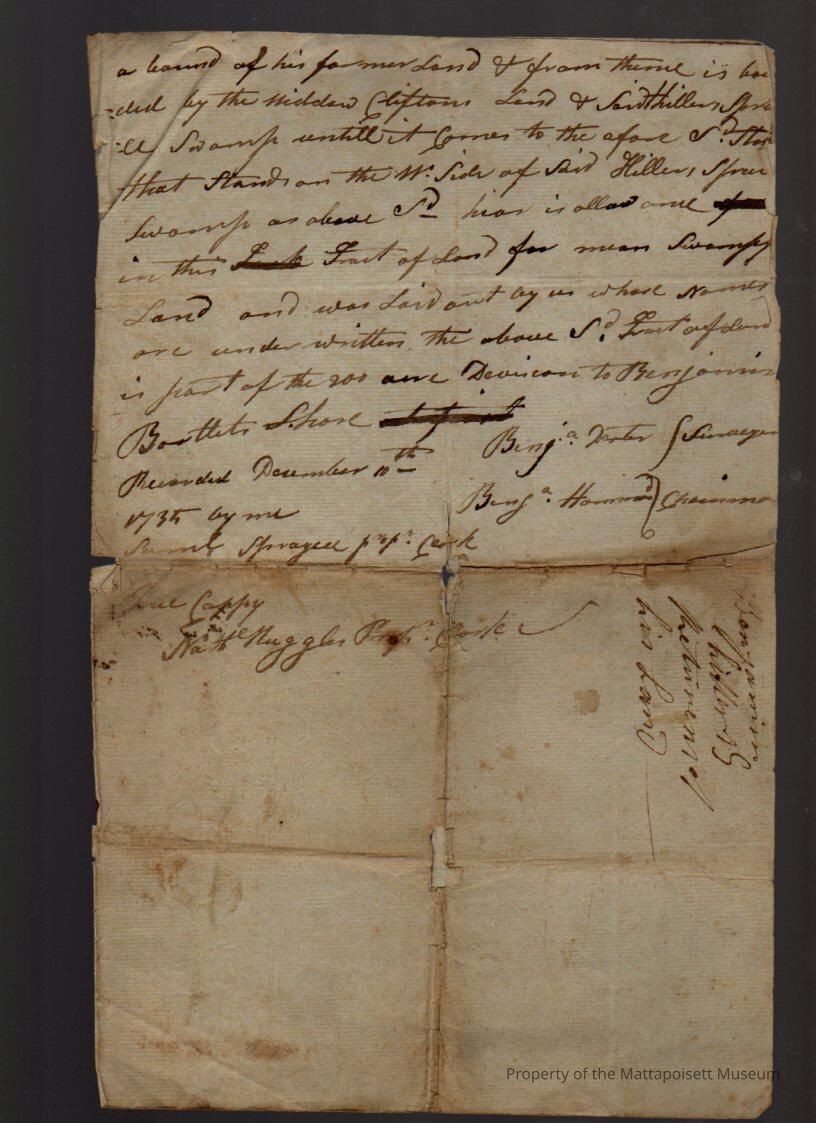 a bound of his former Land & from thence is bou
ded by the Widdow Cliftons Land & Said Hillers Spru
ce Swamp untill it Comes to the afore Sd. Sta
that Stands on the Wt. Side of Said Hillers Spruce
Swamp as above Sd hear is allowance
in this Tract of Land for mean Swampy
Land and was Laid out by us whose Names
are underwritten the above Sd. Tract of Land
is part of the 200 acre Devision to Benjamin
Bartlets Share
Benja. Dexter Surveyer
Recorded December 10th
Benja. Hammond Chainman
1735 by me
Saml Sprague propr. Clerk
True Coppy
Nathll Ruggles Propr. Clerk
Benjamin
Hillers
Returns of
his Land
Property of the Mattapoisett Museum